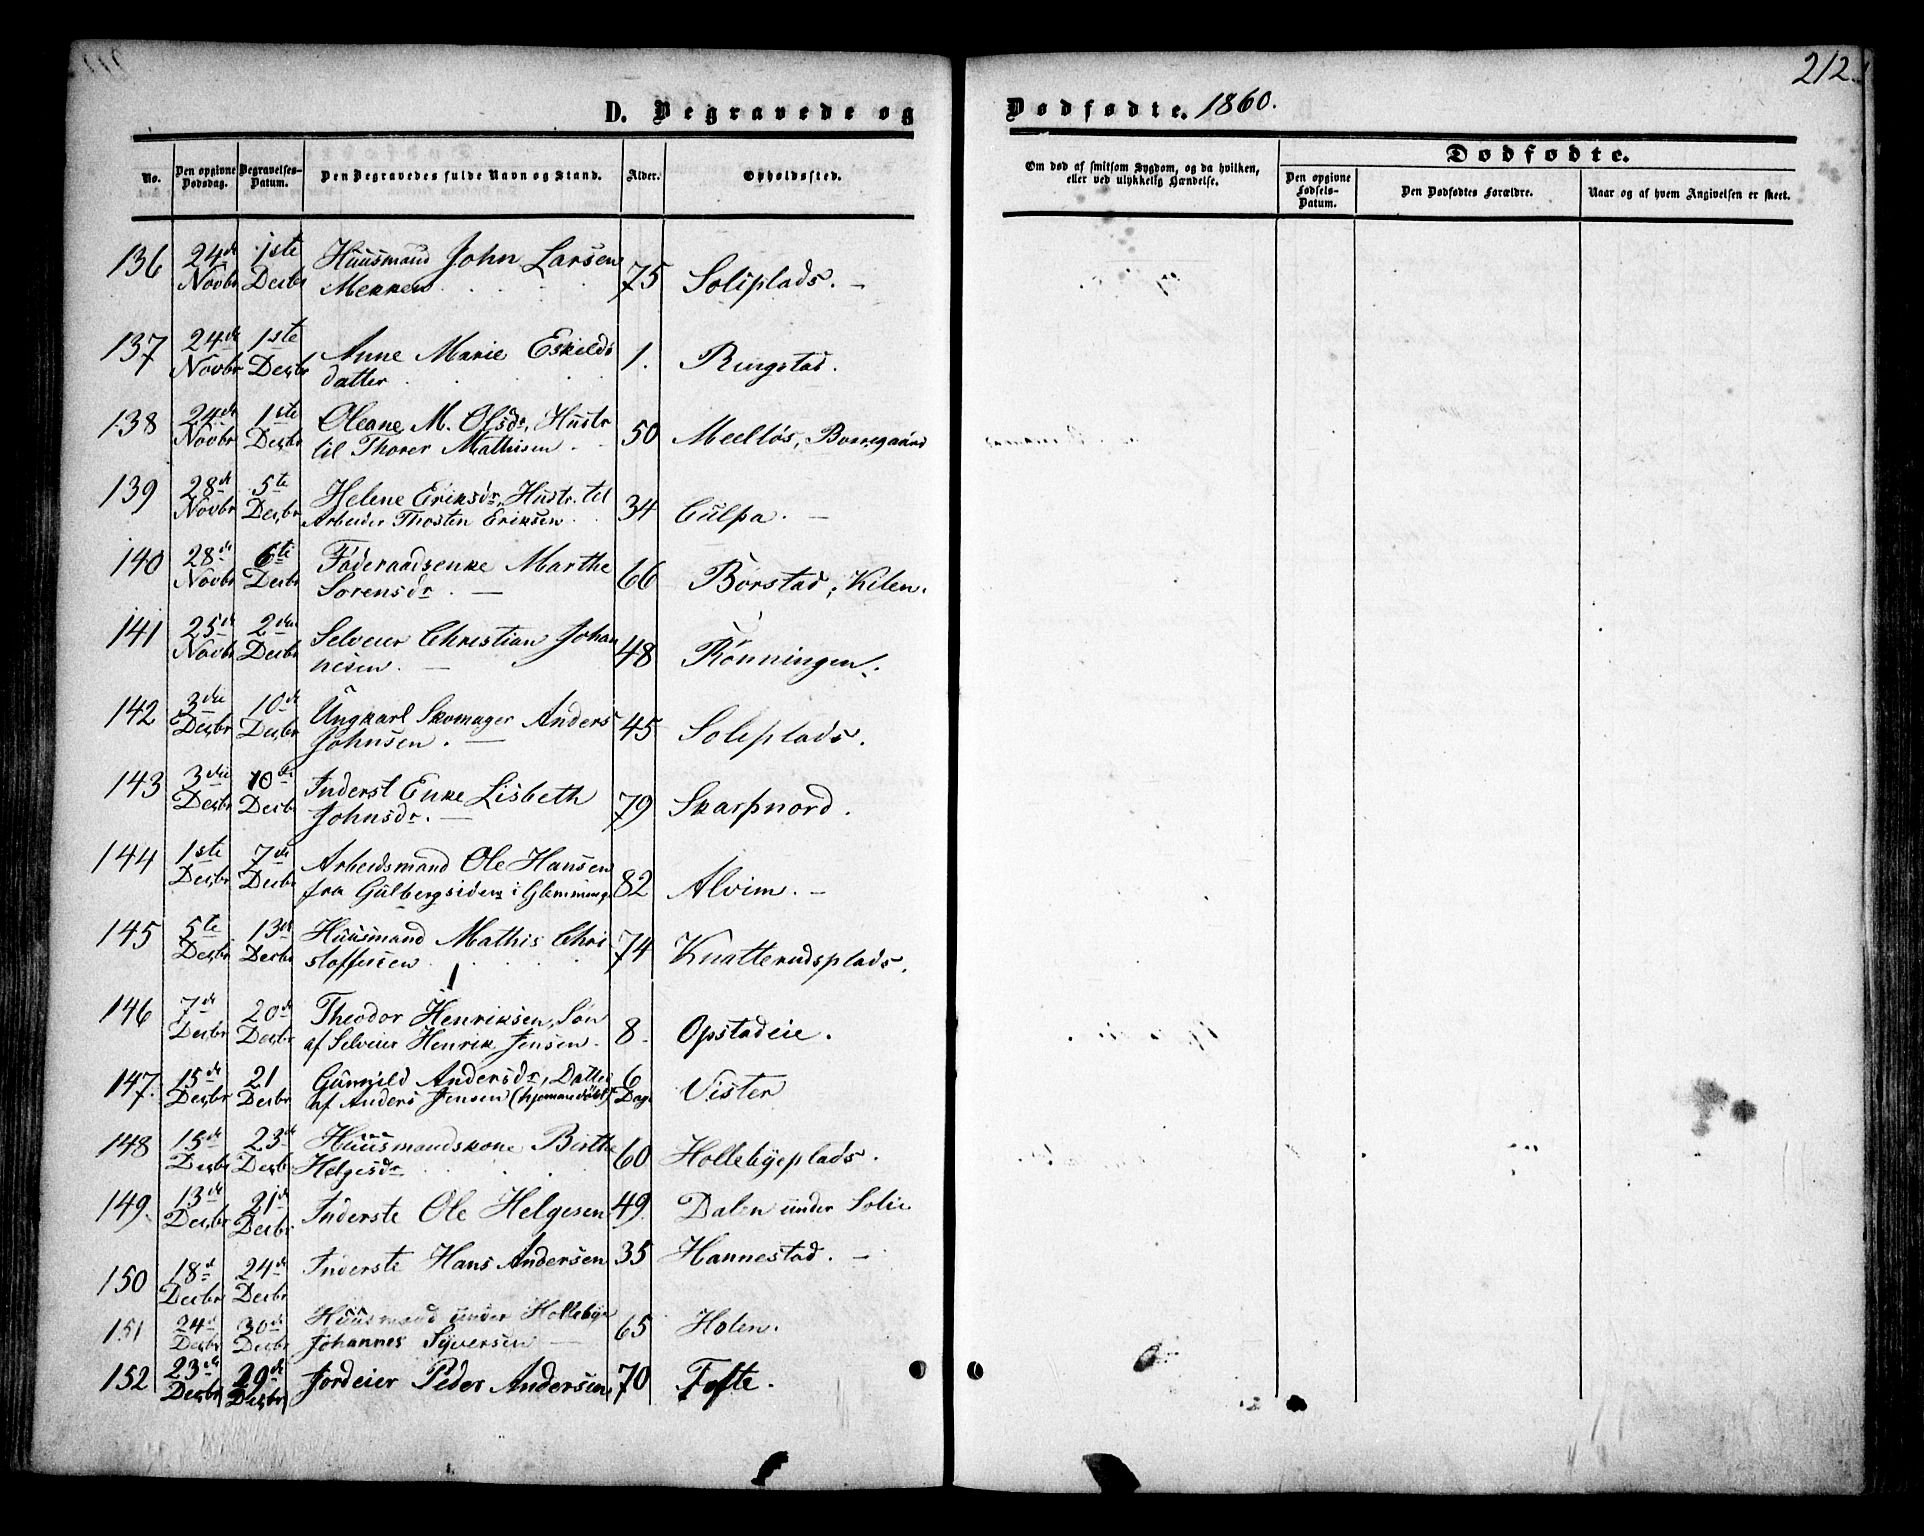 212.
D. Begravede og Dødfødte. 1860.
No. Den opgivne Dødsdag. Begravelses-Datum. Den Begravedes fulde Navn og Stand. Alder. Opholdssted. Om død af smitsom Sygdom, og da hvilken, eller ved ulykkelig Hændelse. Dødfødte. Den opgivne Fødsels-Datum. Den Dødfødtes Forældre. Naar og af hvem Angivelsen er skeet.
136 24de Novbr 1ste Decbr Huusmand John Larsen
75 Soliplads. —
137 24de Novbr 1ste Decbr Anne Marie Eskilds
datter 1. Ringstad.
138 24de Novbr 1ste Decbr Oleane M. Olsdr, Hustr
til Thorer Mathisen 50 Meellös, Borregaard
139 28de Novbr 5te Decbr Helene Eriksdr, Hustr. til
Arbeider Thosten Eriksen 34 Culpa. —
140 28de Novbr 6te Decbr Föderaadsenke Marthe
Sörensdr. — 66 Borstad, Kilen.
141 25de Novbr 2den Decbr Selveier Christian Johan
nesen. — 48 Rönningen.
142 3die Decbr 10de Decbr Ungkarl Skomager Anders
Johnsen. — 45 Soliplads.
143 3die Decbr 10de Decbr Inderst Enke Lisbeth
Johnsdr. — 79 Skarpnord.
144 1ste Decbr 7de Decbr Arbeidsmand Ole Hansen
fra Gulbergsiden i Glemminge 82 Alvim. —
145 5te Decbr 13de Decbr Huusmand Mathis Chri
stoffersen 74 Knatterudsplads.
146 7de Decbr 20de Decbr Theodor Henriksen, Sön
af Selveier Henrik Jensen. 8. Opstadeie.
147. 15de Decbr 21 Decbr Gunnild Andersdr, Datter
af Anders Jensen (hjemmedöbt) 6 Dage Vister
148 15de Decbr 23de Decbr Huusmandskone Birthe
Helgesdr 60 Hollebyeplads.
149. 13de Decbr 21de Decbr Inderste Ole Helgesen 49. Dalen under Solie
150 18de Decbr 24de Decbr Inderste Hans Andersen 35 Hannestad. —
151 24de Decbr 30de Decbr Huusmand under Hollebye
Johannes Syversen — 65 Holen.
152 23de Decbr 29de Decbr Jordeier Peder Andersen, 70 Tofte.